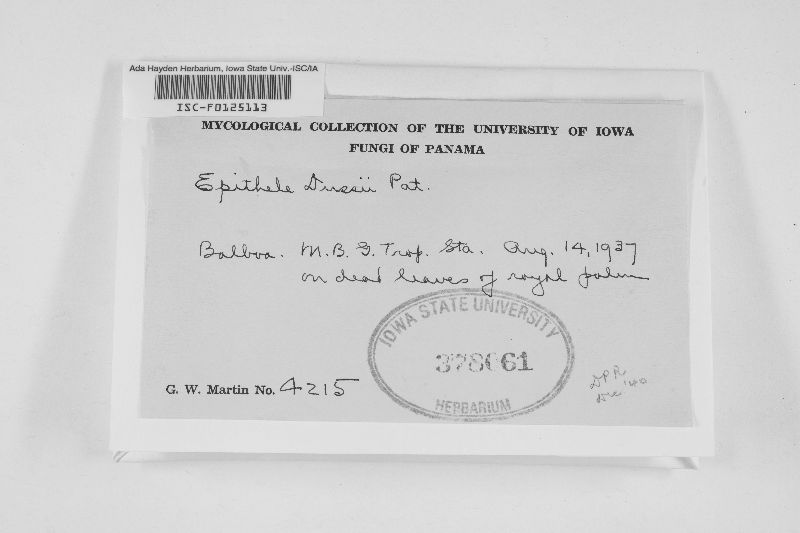 Ada Hayden Herbarium, Iowa State Univ.-ISC/IA
ISC-F0125113
MYCOLOGICAL COLLECTION OF THE UNIVERSITY OF IOWA
FUNGI OF PANAMA
Epithele Dussii Pat.
Balboa. M.B.G. Trop. Sta. Aug. 14, 1937
on dead leaves of royal palm
IOWA STATE UNIVERSITY
378661
HERBARIUM
G. W. Martin No. 4215
DPR
Dec '40